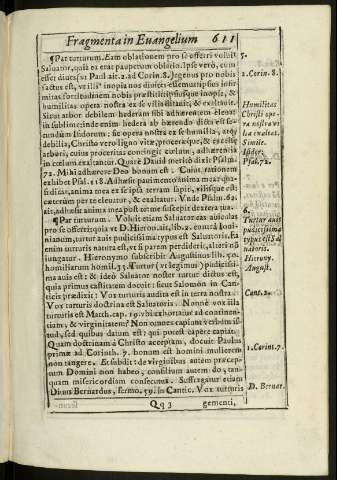 Fragmenta in Euangelium 611
¶Par turturum. Eam oblationem pro se offerri voluit
Saluator, quia ea erat pauperum oblatio. Ipse verò, cum
esset diues (ut Paul ait. 2. ad Corin. 8.) egenus pro nobis
factus est, ut illi⁹ inopia nos diuites essemus: ipsius infir
mitas fortitudinem nobis præstitit: ipsiusque inopia, &
humilitas opera nostra ex se vilia ditauit, & exaltauit.
Sicut arbor debilem hederam sibi adhærentem eleuat
in sublime: inde enim hedera ab hærendo dicta est se-
cundùm Isidorum: se opera nostra ex se humilia, atq;
debilia, Christo vero ligno vitæ, proceræque, & excelsæ
arbori, cuius proceritas contingit cælum, adhærentia
in cælum exaltantur. Quare Dauid meritò dixit Psalm.
72. Mihi adhærere Deo bonum est. Cuius rationem
exhibet Psal. 118. Adhæsit pauimento anima mea: qua-
si dicat, anima mea ex se ipsa terram sapit, vilisque est:
cæterùm per te eleuatur, & exaltatur. Vnde Psalm. 62.
ait, adhæsit anima mea post te: me suscepit dextera tua.
¶Par turturum. Voluit etiam Saluator eas auiculas
pro se offerri: quia vt D. Hieron. ait, lib. 2. contra Ioui-
nianum, turtur auis pudicissima typus est Saluatoris. Ea
enim turturis natura est, vt si parem perdiderit, alteri nõ
iungatur. Hieronymo subscribit Augustinus lib. 50.
homiliarum homil. 35. Turtur (vt legimus) pudicissi-
ma auis est: & ideò Saluator noster turtur dictus est,
quia primus castitatem docuit: sicut Salomon in Can-
ticis prædixit: Vox turturis audita est in terra nostra:
Vox turturis doctrina est Saluatoris. Nonne vox illa
turturis est Matth. cap. 19. vbi exhortatur ad continen-
tiam, & virginitatem? Non omnes capiunt verbum is-
tud, sed quibus datum est: qui potest capere capiat.
Quam doctrinam à Christo acceptam, docuit Paulus
primæ ad Corinth. 7. bonum est homini mulierem
non tangere. Et subdit: de virginibus autem præcep-
tum Domini non habeo, consilium autem do, tan-
quam misericordiam consecutus. Suffragatur etiam
Diuus Bernardus, sermo. 59. in Cantic. Vox turturis
Qq 3 gementi,
5.
2. Corin. 8.
Humilitas
Christi ope-
ra nostra vi
lia exaltat.
Simile.
Isidor.
Psal. 72.
6.
Turtur auis
pudicissima
typus est Sal
uatoris.
Hierony.
August.
Cant. 2.
1. Corint. 7.
D. Bernar.